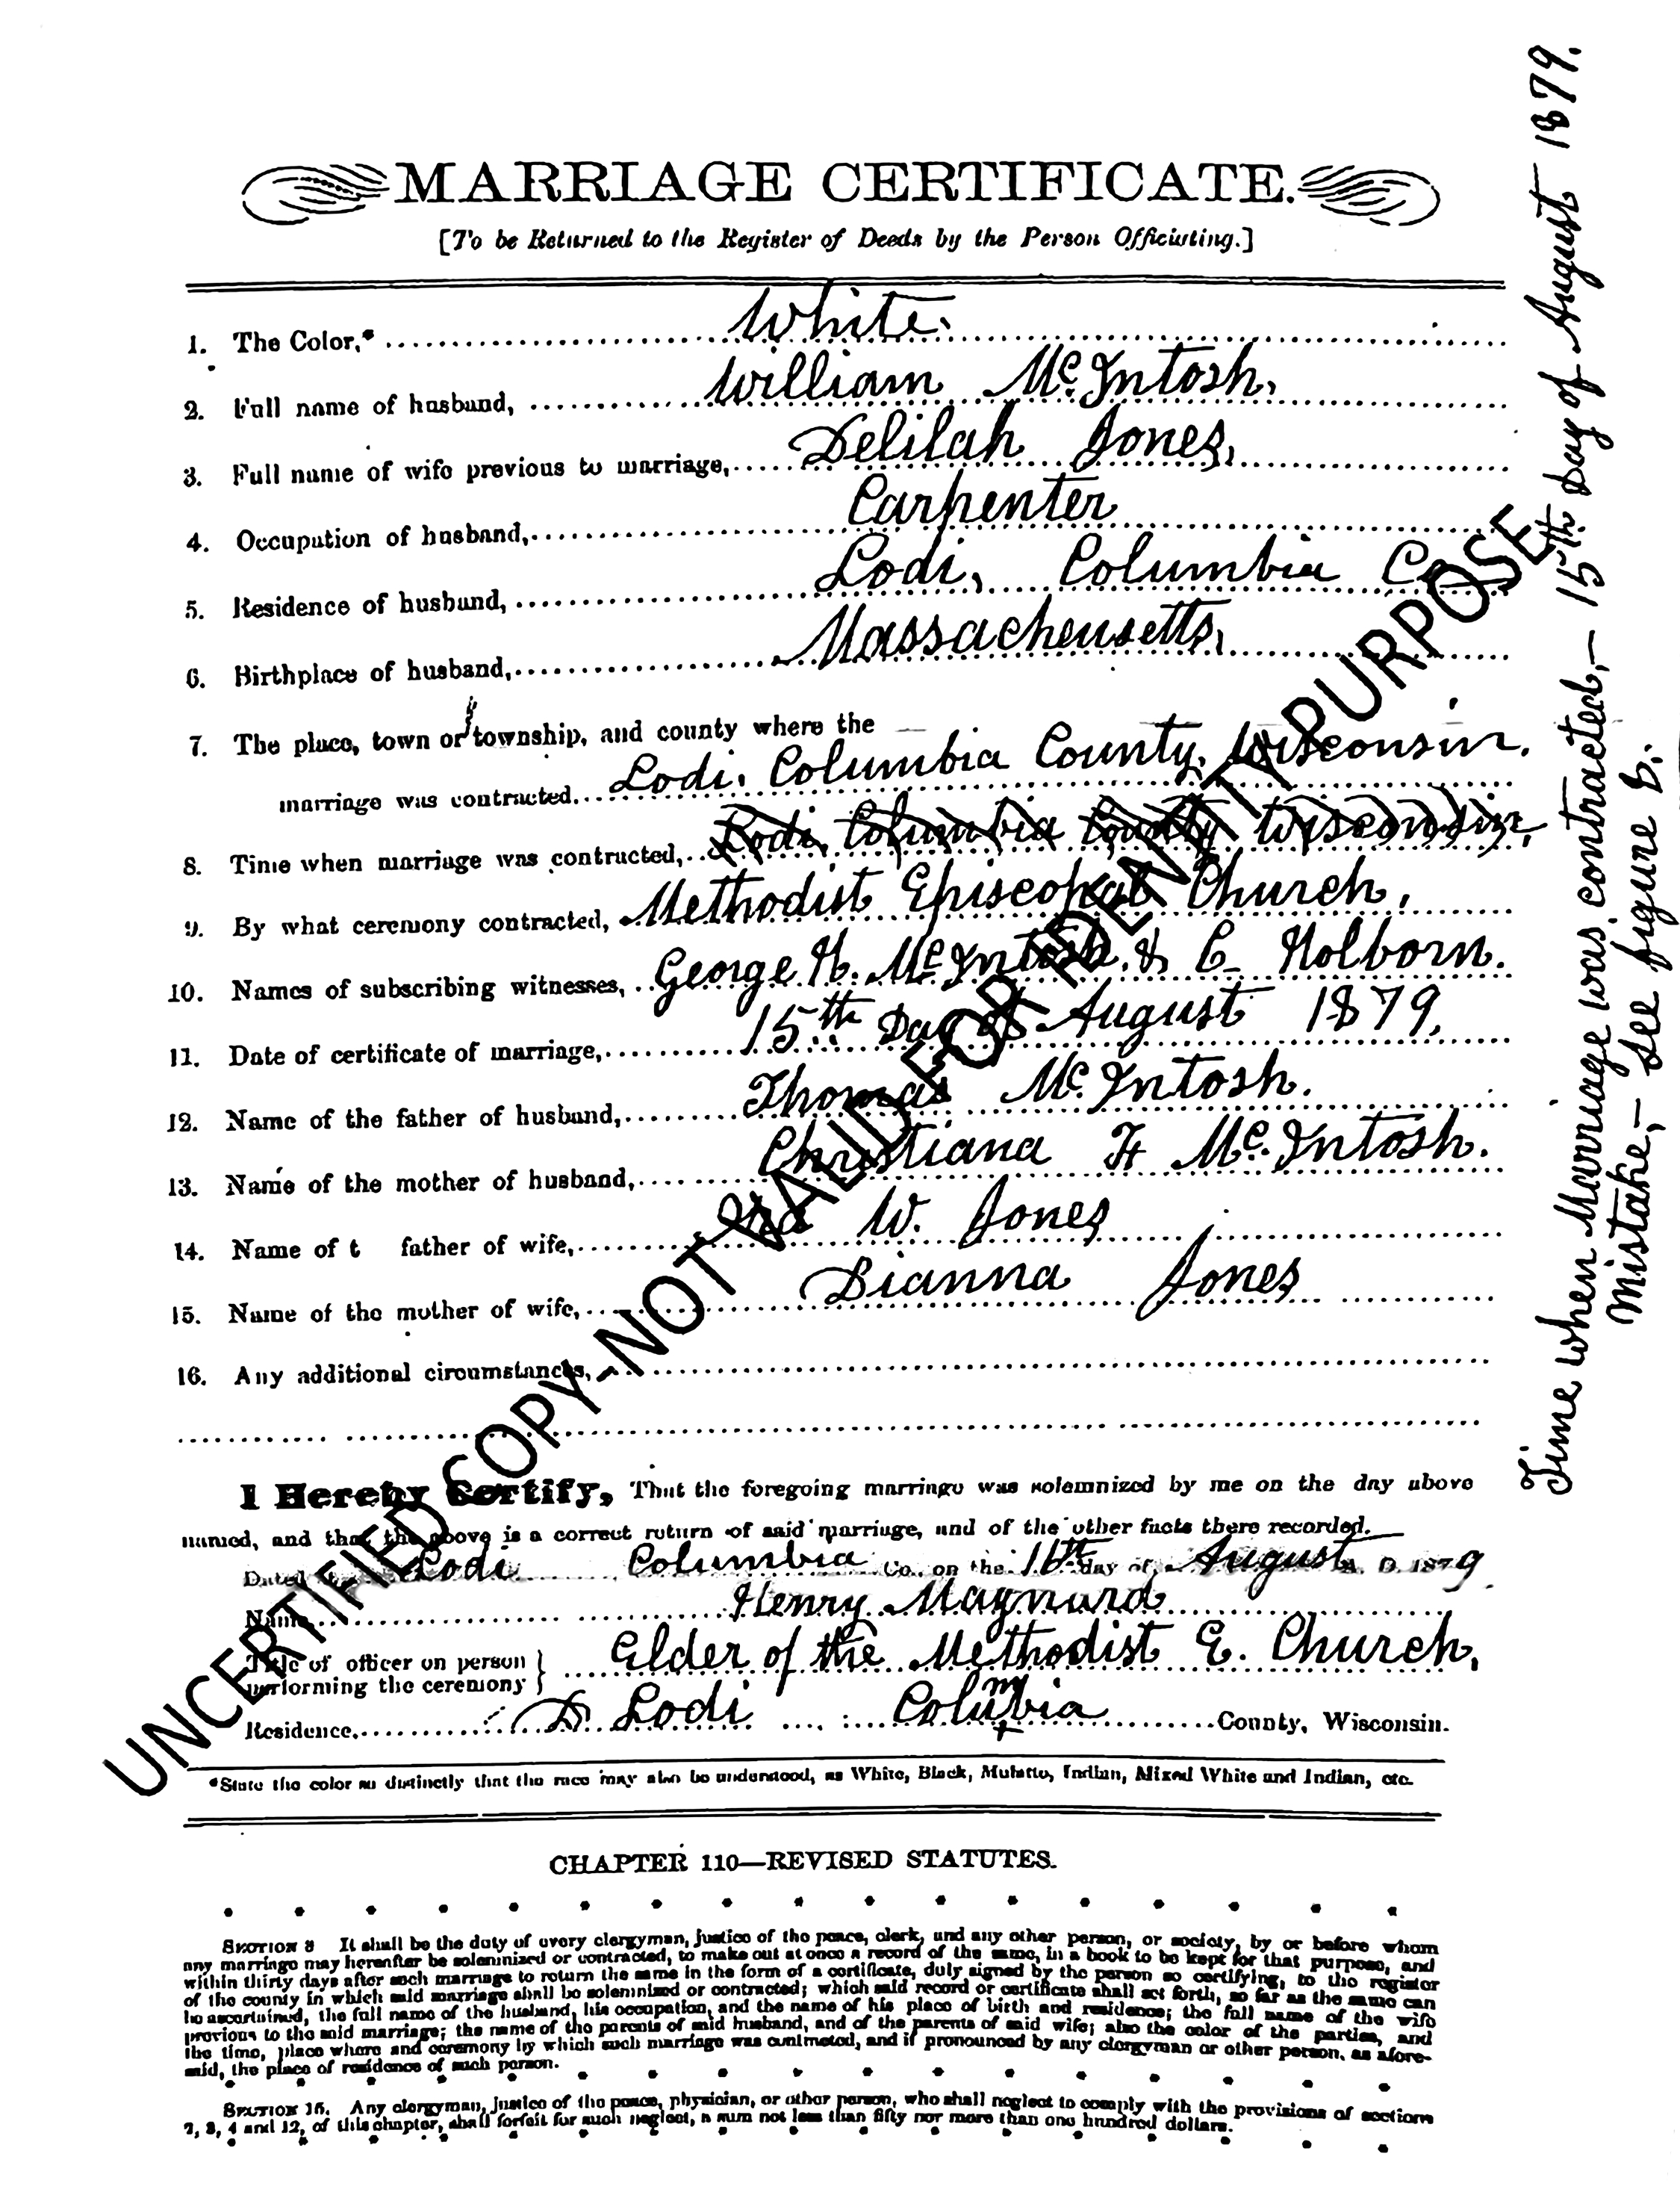 MARRIAGE CERTIFICATE.
[To be Returned to the Register of Deeds by the Person Officiating.]
1. The Color,* White.
2. Full name of husband, William McIntosh,
3. Full name of wife previous to marriage, Delilah Jones,
4. Occupation of husband, Carpenter
5. Residence of husband, Lodi, Columbia Co
6. Birthplace of husband, Massacheusetts,
7. The place, town or township, and county where the
marriage was contracted. Lodi, Columbia County, Wisconsin.
8. Time when marriage was contracted, Lodi, Columbia County Wisconsin,
9. By what ceremony contracted, Methodist Episcopal Church,
10. Names of subscribing witnesses, George H. McIntosh, & C Holborn.
11. Date of certificate of marriage, 15th Day of August 1879,
12. Name of the father of husband, Thomas McIntosh.
13. Name of the mother of husband, Christiana F McIntosh.
14. Name of t father of wife, W. Jones
15. Name of the mother of wife, Dianna Jones
16. Any additional circumstances,
I Hereby Certify, That the foregoing marriage was solemnized by me on the day above
named, and that the above is a correct return of said marriage, and of the other facts there recorded.
Dated at Lodi Columbia Co., on the 16th day of August A. D. 1879.
Name Henry Maynard
Title of officer on person
performing the ceremony } Elder of the Methodist E. Church,
Residence. Lodi Columbia County, Wisconsin.
*State the color so distinctly that the race may also be understood, as White, Black, Mulatto, Indian, Mixed White and Indian, etc.
CHAPTER 110—REVISED STATUTES.
SECTION 8 It shall be the duty of every clergyman, justice of the peace, clerk, and any other person, or society, by or before whom
any marriage may hereafter be solemnized or contracted, to make out at once a record of the same, in a book to be kept for that purpose, and
within thirty days after such marriage to return the same in the form of a certificate, duly signed by the person so certifying, to the register
of the county in which said marriage shall be solemnized or contracted; which said record or certificate shall set forth, so far as the same can
be ascertained, the full name of the husband, his occupation, and the name of his place of birth and residence; the full name of the wife
previous to the said marriage; the name of the parents of said husband, and of the parents of said wife; also the color of the parties, and
the time, place where and ceremony by which such marriage was contracted, and if pronounced by any clergyman or other person, as afore-
said, the place of residence of such person.
SECTION 15. Any clergyman, justice of the peace, physician, or other person, who shall neglect to comply with the provisions of sections
7, 8, 4 and 12, of this chapter, shall forfeit for such neglect, a sum not less than fifty nor more than one hundred dollars.
Time when Marriage was contracted,— 15th day of August 1879.
Mistake,— see figure 8.
UNCERTIFIED COPY-NOT VALID FOR IDENTITY PURPOSE